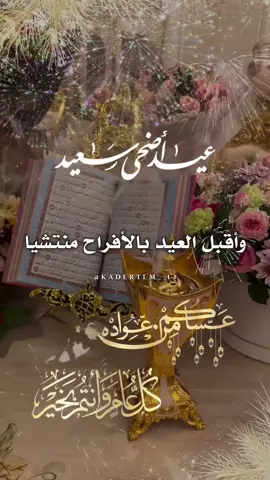 عيد أضحى سعيد
وأقبل العيد بالأفراح منتشيا
@KADERTEM_.13
عساكم من عواده
كل عام وأنتم بخير